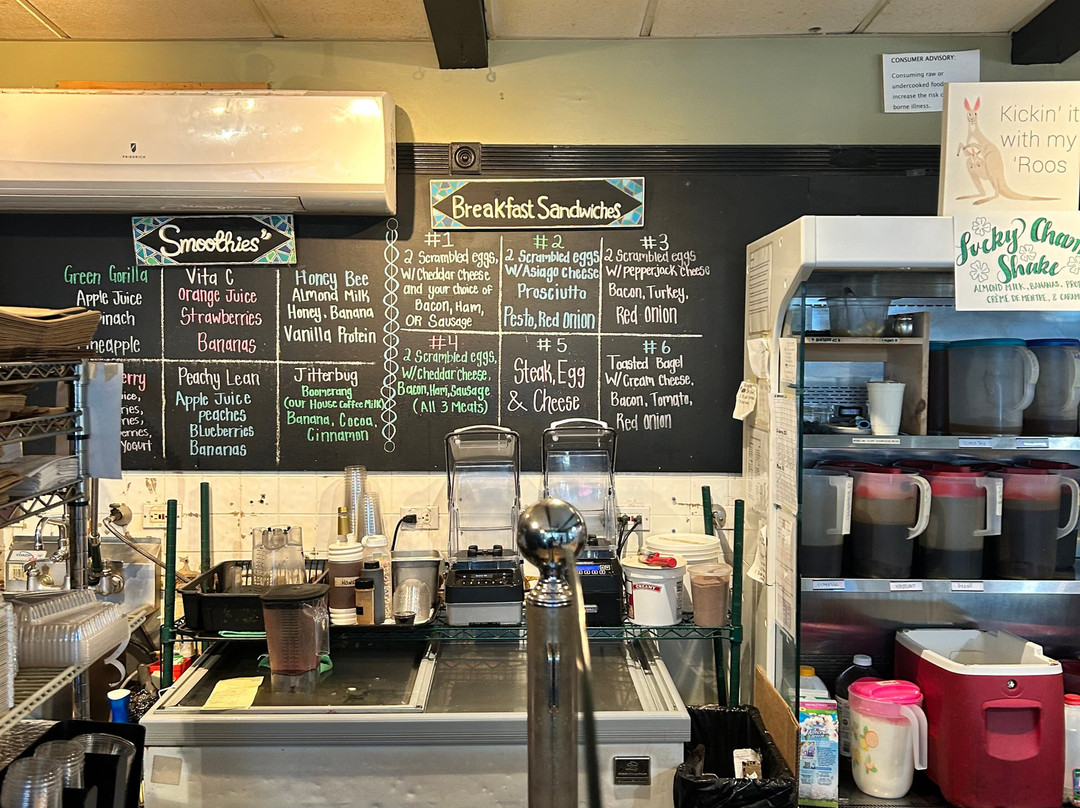 CONSUMER ADVISORY:
Consuming raw or
undercooked foods
increase the risk
borne illness.
FRIEDRICH
Kickin' it
with my
'Roos
Lucky Char
Shake
ALMOND MILK, BANANAS, PRO
CRÈME DE MENTHE, & CARAM
Smoothies
Green Gorilla
Apple Juice
inach
neapple
Vita C
Orange Juice
Strawberries
Bananas
Honey Bee
Almond Milk
Honey, Banana
Vanilla Protein
erry
ice,
ies,
erries,
Yogurt
Peachy Lean
Apple Juice
peaches
Blueberries
Bananas
Jitterbug
Boomerang
(our House Coffee Milk)
Banana, Cocoa,
Cinnamon
Breakfast Sandwiches
#1
2 Scrambled eggs,
W/Cheddar Cheese
and your choice of
Bacon, Ham,
OR Sausage
#2
2 Scrambled eggs
W/Asiago Cheese
Prosciutto
Pesto, Red Onion
#3
2 Scrambled eggs
W/Pepperjack Cheese
Bacon, Turkey,
Red Onion
#4
2 Scrambled eggs,
W/Cheddar Cheese,
Bacon, Ham, Sausage
(All 3 Meats)
#5
Steak, Egg
& Cheese
#6
Toasted Bagel
W/Cream Cheese,
Bacon, Tomato,
Red Onion